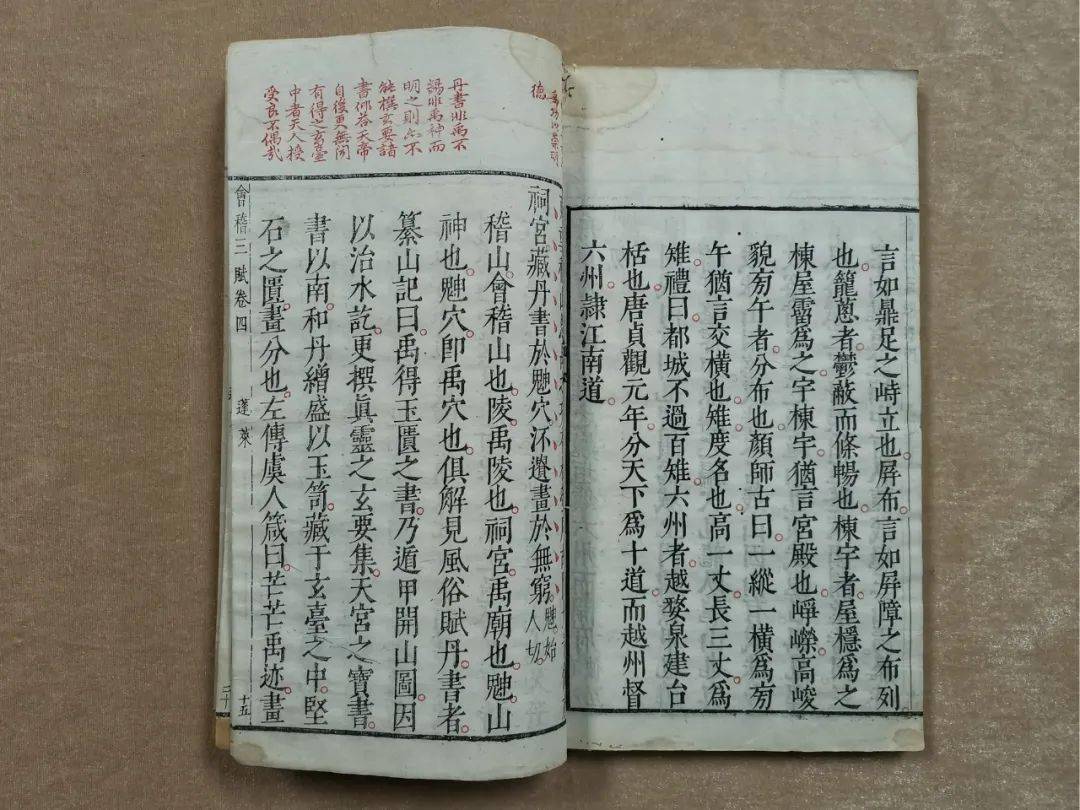 言如鼎足之峙立也屏布言如屏障之布列
也籠蔥者鬱蔽而條暢也棟宇者屋穩爲之
棟屋霤爲之宇棟宇猶言宮殿也崢嶸高峻
貌旁午者分布也顏師古曰一縱一橫爲旁
午猶言交橫也雉度名也高一丈長三丈爲
雉禮曰都城不過百雉六州者越婺泉建台
栝也唐貞觀元年分天下爲十道而越州督
六州隷江南道
德
丹書非禹不
錫非禹神而
明之則亦不
能撰玄要諸
書仰荅天帝
自後更無聞
有得之玄臺
中者天人授
受良不偶哉
祠宮藏丹書於䰠穴㳅遺畫於無窮䰠始人切
稽山會稽山也陵禹陵也祠宮禹廟也䰠山
神也䰠穴卽禹穴也俱解見風俗賦丹書者
纂山記曰禹得玉匱之書乃遁甲開山圖因
以治水訖更撰眞靈之玄要集天宮之寶書
書以南和丹繒盛以玉笥藏于玄臺之中堅
石之匱畫分也左傳虞人箴曰芒芒禹迹畫
會稽三賦卷四 蓬萊 十五
二十